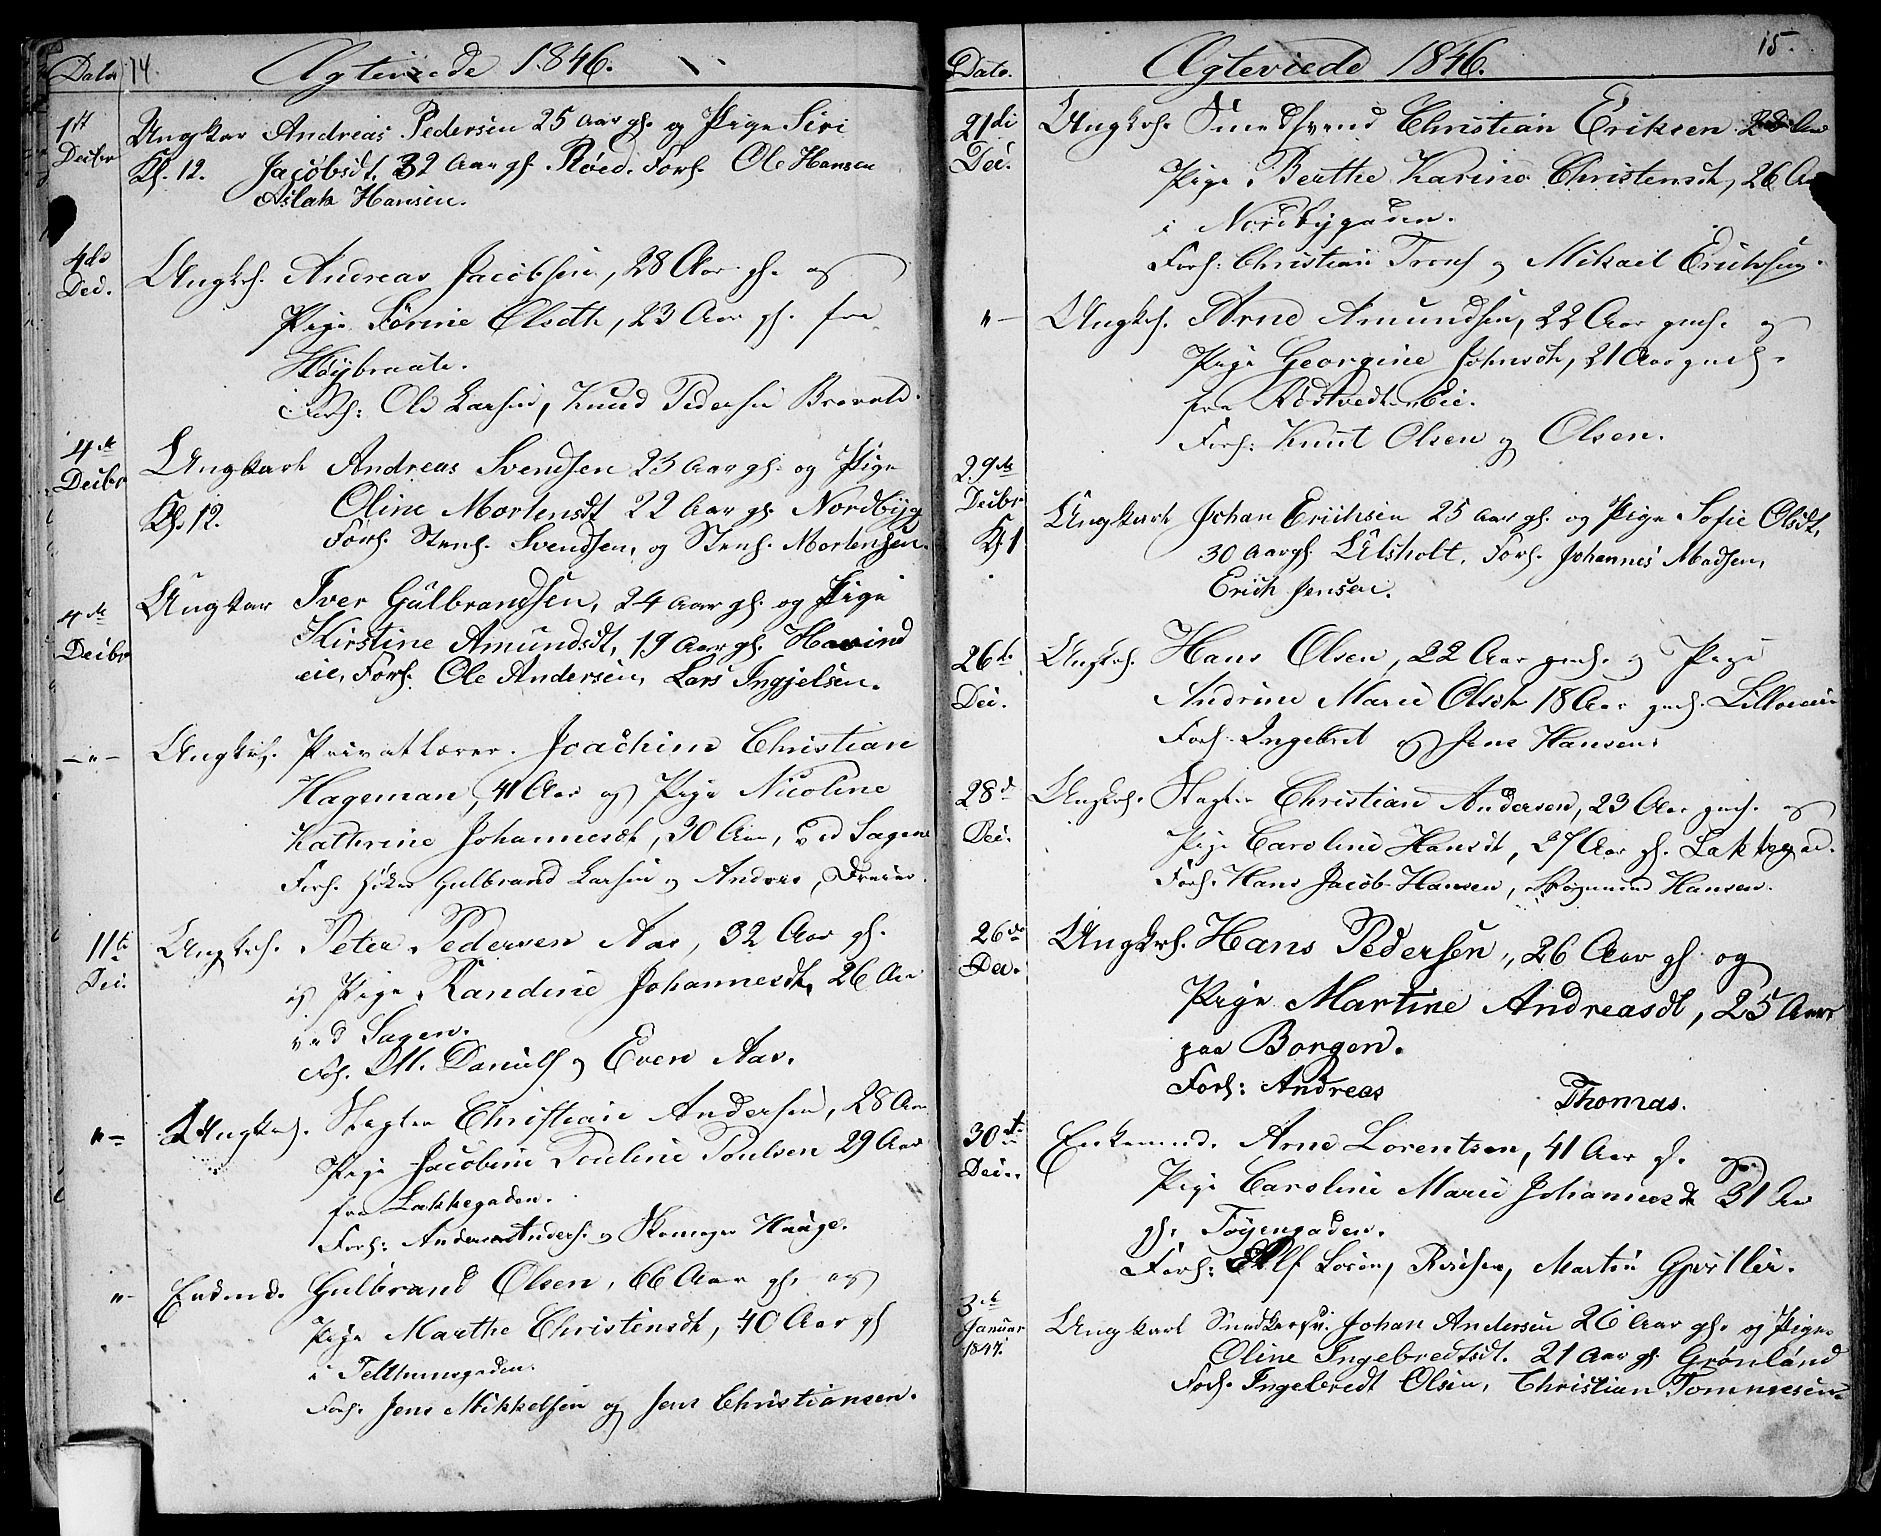 Dato 14. Ægteviede 1846.
1ste Decbr Ungkar Andreas Pedersen 25 Aar gl. og Pige Siri
Kl. 12. Jacobsdt. 32 Aar gl. Røed. Forl. Ole Hansen
Aslak Hansen.
4de Dec. Ungkrl. Andreas Jacobsen, 28 Aar gl. og
Pige Sørine Olsdtr, 23 Aar gl. fra
Høybraate.
Forl: Ole Larsen, Knud Pedersen
4de Decbr Ungkarl Andreas Svendsen 23 Aar gl. og Pige
Kl. 12. Oline Mortensdt 22 Aar gl. Nordbyg
Forl. Svendsen, og Mortensen.
4de Decbr Ungkar Iver Gulbrandsen, 24 Aar gl. og Pige
Kirstine Amundsdt, 19 Aar gl.
eie, Forl. Ole Andersen, Lars Ingjelsen.
—"— Ungkrl. Privatlærer. Joachim Christian
Hageman, 41 Aar og Pige Nicoline
Kathrine Johannesdt, 30 Aar, ved Sagene
Forl. Gulbrand Larsen og Anders
11te Dec. Ungkrl. Peter Pedersen Aas, 32 Aar gl.
og Pige Randine Johannesdt, 26 Aar
ved Sagen.
Fol. M. Daniels og Even Aas.
"— Ungkrl. Slagter Christian Andersen, 28 Aar
Pige Jacobine Pouline Poulsen 29 Aar
fra Lakkegaden.
Forl: Anders Anders. og Skomager Hauge.
"— Enkemd. Gulbrand Olsen, 66 Aar gl. og
Pige Marthe Christensdt, 40 Aar gl
i Telthusgaden.
Forl. Jens Mikkelsen og Jens Christiansen.
Dato. Ægteviede 1846. 15.
21de Dec. Ungkrl. Smedsvend Christian Eriksen 28 Aar
Pige Berthe Karine Christensdt, 26 Aar
i Nordbygaden.
Forl: Christian og Mikael
"— Ungkrl. Arne Amundsen, 22 Aar gml. og
Pige Georgine Johnsdt, 21 Aar gml.
fra Rödtvedt Eie.
Forl: Knut Olsen og Olsen.
29de Decbr Kl. 1 Ungkarl Johan Erichsen 25 Aar gl. og Pige Sofie Olsdt,
30 Aar gl. Ulsholt. Forl. Johannes Madsen,
Erich Jensen.
26de Dec. Ungkrl. Hans Olsen, 22 Aar gml. og Pige
Andrine Marie Olsdt 18 Aar gml.
Forl. Ingebret og Jens Hansen.
28de Dec. Ungkrl. Slagter Christian Andersen, 23 Aar gml. og
Pige Caroline Hansdt, 27 Aar gl. Lakkegad.
Forl. Hans Jacob Hansen, Hansen.
26de Dec. Ungkrl. Hans Pedersen, 26 Aar gl og
Pige Martine Andreasdt, 25 Aar
paa Borgen.
Forl: Andreas Thomas.
30te Dec. Enkemnd. Arne Lorentsen, 41 Aar gl. og
Pige Caroline Marie Johannesdt 31 Aar
gl. Tøyengaden.
Forl: Martin Gjørtler.
3de Januar 1847. Ungkarl Snedkersv. Johan Andersen 26 Aar gl. og Pige
Oline Ingebredtsdt. 21 Aar gl. Grönland
Forl. Ingebredt Olsen, Christian Tommesen.